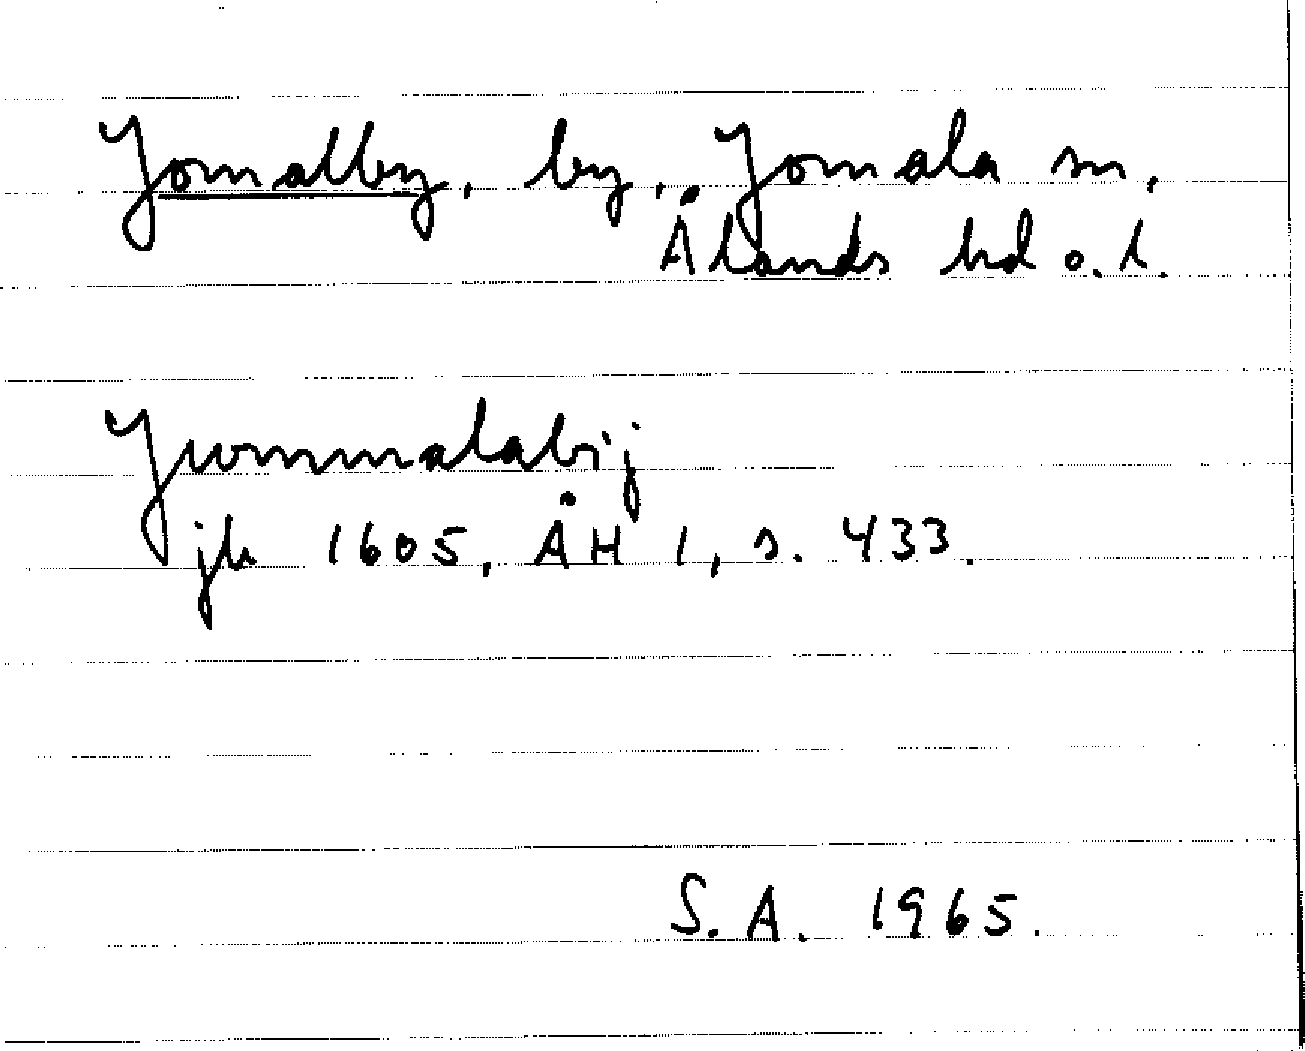 Jomalby, by, Jomala sn,
Ålands hd o. l.
Jummalabij
jb 1605, ÅH 1, s. 433.
S.A. 1965.